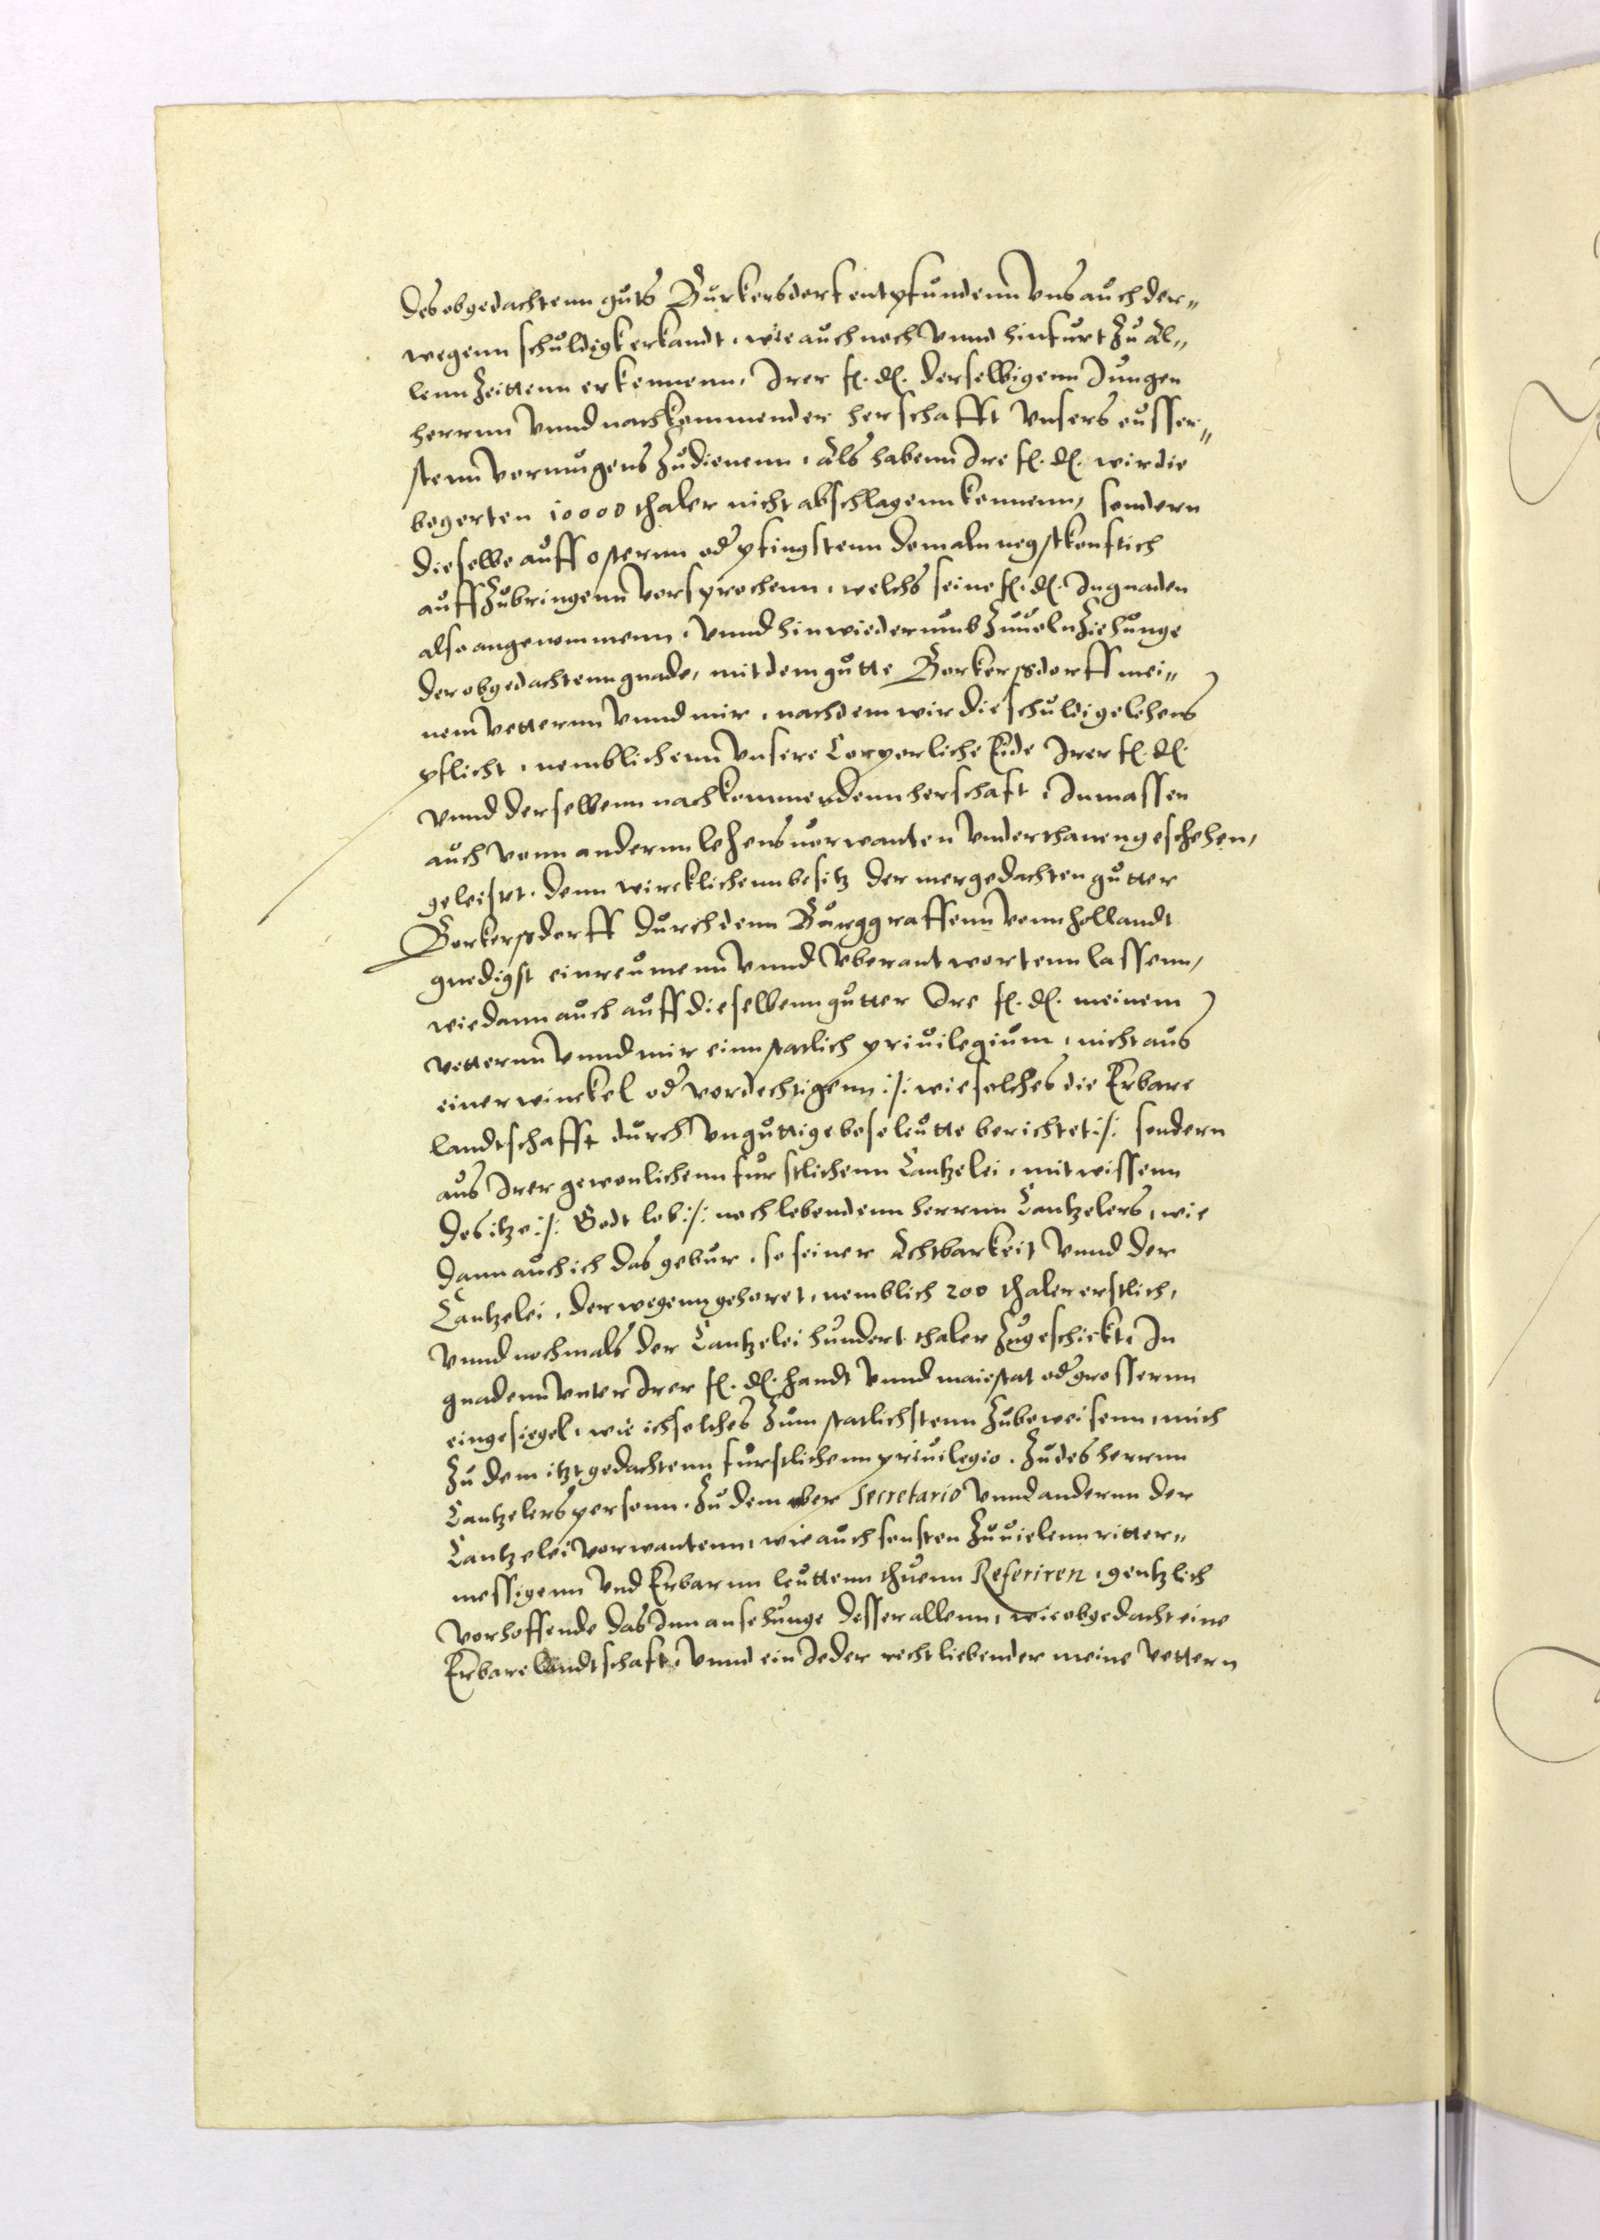 des obgedachtenn guts Burkersdorf entpfundenn vns auch der„
wegenn schuldigk erkandt, wie auch noch vnnd hinfurt zu al„
lenn zeittenn erkennenn, Irer f. d. derselbigenn Jungen
herrnn vnnd nachkommender herschafft vnsers eusser„
stenn vermugens zudienenn, Als habenn Ire f. d. wir die
begerten 10000 thaler nicht abschlagenn kennenn, sondern
dieselbe auff osternn oder pfingstenn domaln negstkonftich
auffzubringenn versprochenn, welchs seine f. d. In gnaden
also angenommenn, vnnd hinwiederumb zuuolnziehunge
der obgedachtenn gnade, mit dem gutte Borkersdorff mei„
nem vetternn vnnd mir, nachdem wir die schuldige lehens
pflicht, nemblichenn vnsere Corperliche Eide Irer f. d.
vnnd derselbenn nachkommendenn herschaft, Inmassen
auch vonn andernn lehensuorwanten vnderthanen geschehen,
geleistet, denn wircklichenn besitz der mergedachten gutter
Borkersdorff durch denn Burggraffenn vonn Hollandt
gnedigst einreumenn vnnd vberantwortenn lassenn,
wie dann auch auff dieselbenn gutter Ire f. d. meinem
vetternn vnnd mir einn statlich priuilegium, nicht aus
einer winckel oder vordechtigenn :/: wie solches die Erbare
landtschafft durch vnguttige bose leutte berichtet :/: sondern
aus Irer gewonlichenn furstlichenn Cantzelei, mit wissenn
des itze :/: Godt lob :/: noch lebendenn herrnn Cantzelers, wie
dann auch ich das gebur, so seiner Achtbarkeit vnnd der
Cantzelei, derwegenn gehoret, nemblich 200 thaler erstlich,
vnnd nochmals der Cantzelei hundert thaler zugeschickt, In
gnadenn vnter Irer f. d. handt vnnd maiestat oder grossernn
eingesiegel, wie ich solches zum statlichstenn zubeweisenn, mich
zu dem itztgedachtenn furstlichenn priuilegio, zu des herrnn
Cantzelers personn, zu dem ober Secretario vnnd andernn der
Cantzelei vorwantenn, wie auch sonsten zuuielenn ritter„
messigenn vnd Erbarnn leuttenn thuenn Referiren, gentzlich
vorhoffende das Inn ansehunge desser allenn, wie obgedacht eine
Erbare landtschaft, vnnd ein Jeder rechtliebender meine vettern